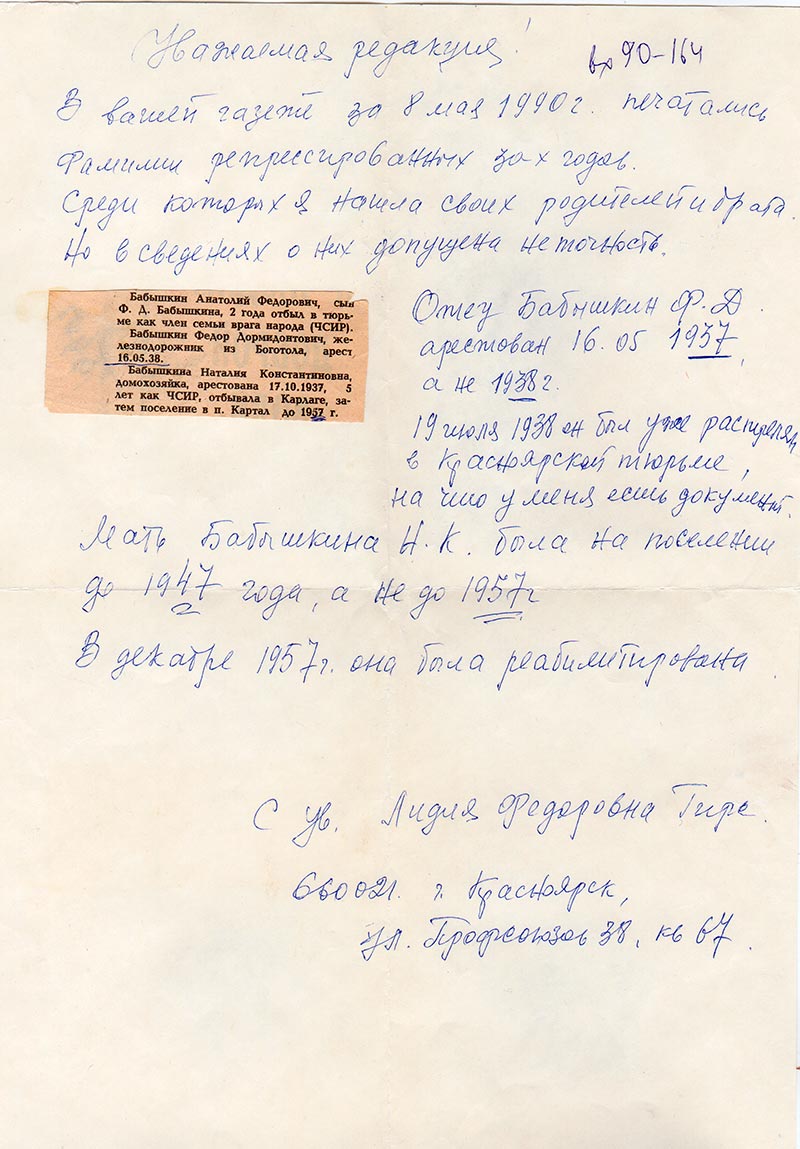 Уважаемая редакция!
вх 90-164
В вашей газете за 8 мая 1990г. печатались
Фамилии репрессированных 30-х годов.
Среди которых я нашла своих родителей и брата.
Но в сведениях о них допущена неточность.
Бабышкин Анатолий Федорович, сын
Ф. Д. Бабышкина, 2 года отбыл в тюрь-
ме как член семьи врага народа (ЧСИР).
Бабышкин Федор Дормидонтович, же-
лезнодорожник из Боготола, арест.
16.05.38.
Бабышкина Наталия Константиновна,
домохозяйка, арестована 17.10.1937, 5
лет как ЧСИР, отбывала в Карлаге, за-
тем поселение в п. Картал до 1957 г.
Отец Бабышкин Ф.Д.
арестован 16.05 1937,
а не 1938г.
19 июля 1938 он был уже расстрелян
в Красноярской тюрьме,
на что у меня есть документ.
Мать Бабышкина Н.К. была на поселении
до 1947 года, а не до 1957г
В декабре 1957г. она была реабилитирована.
С ув. Лидия Федоровна
660021. г. Красноярск,
ул. Профсоюзов 38, кв 67.